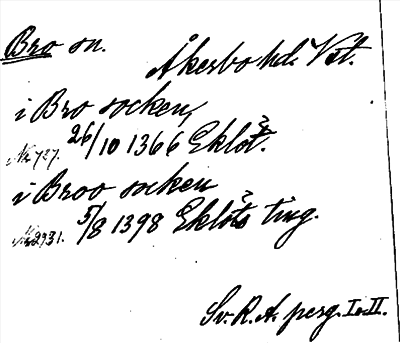 Bro sn.
Åkerbo hd. Vst.
i Bro socken,
№ 727. 26/10 1366 Eklöt.
i Broo socken
№ 2931. 5/8 1398 Eklöts ting.
Sv. R. A. perg. I o. II.